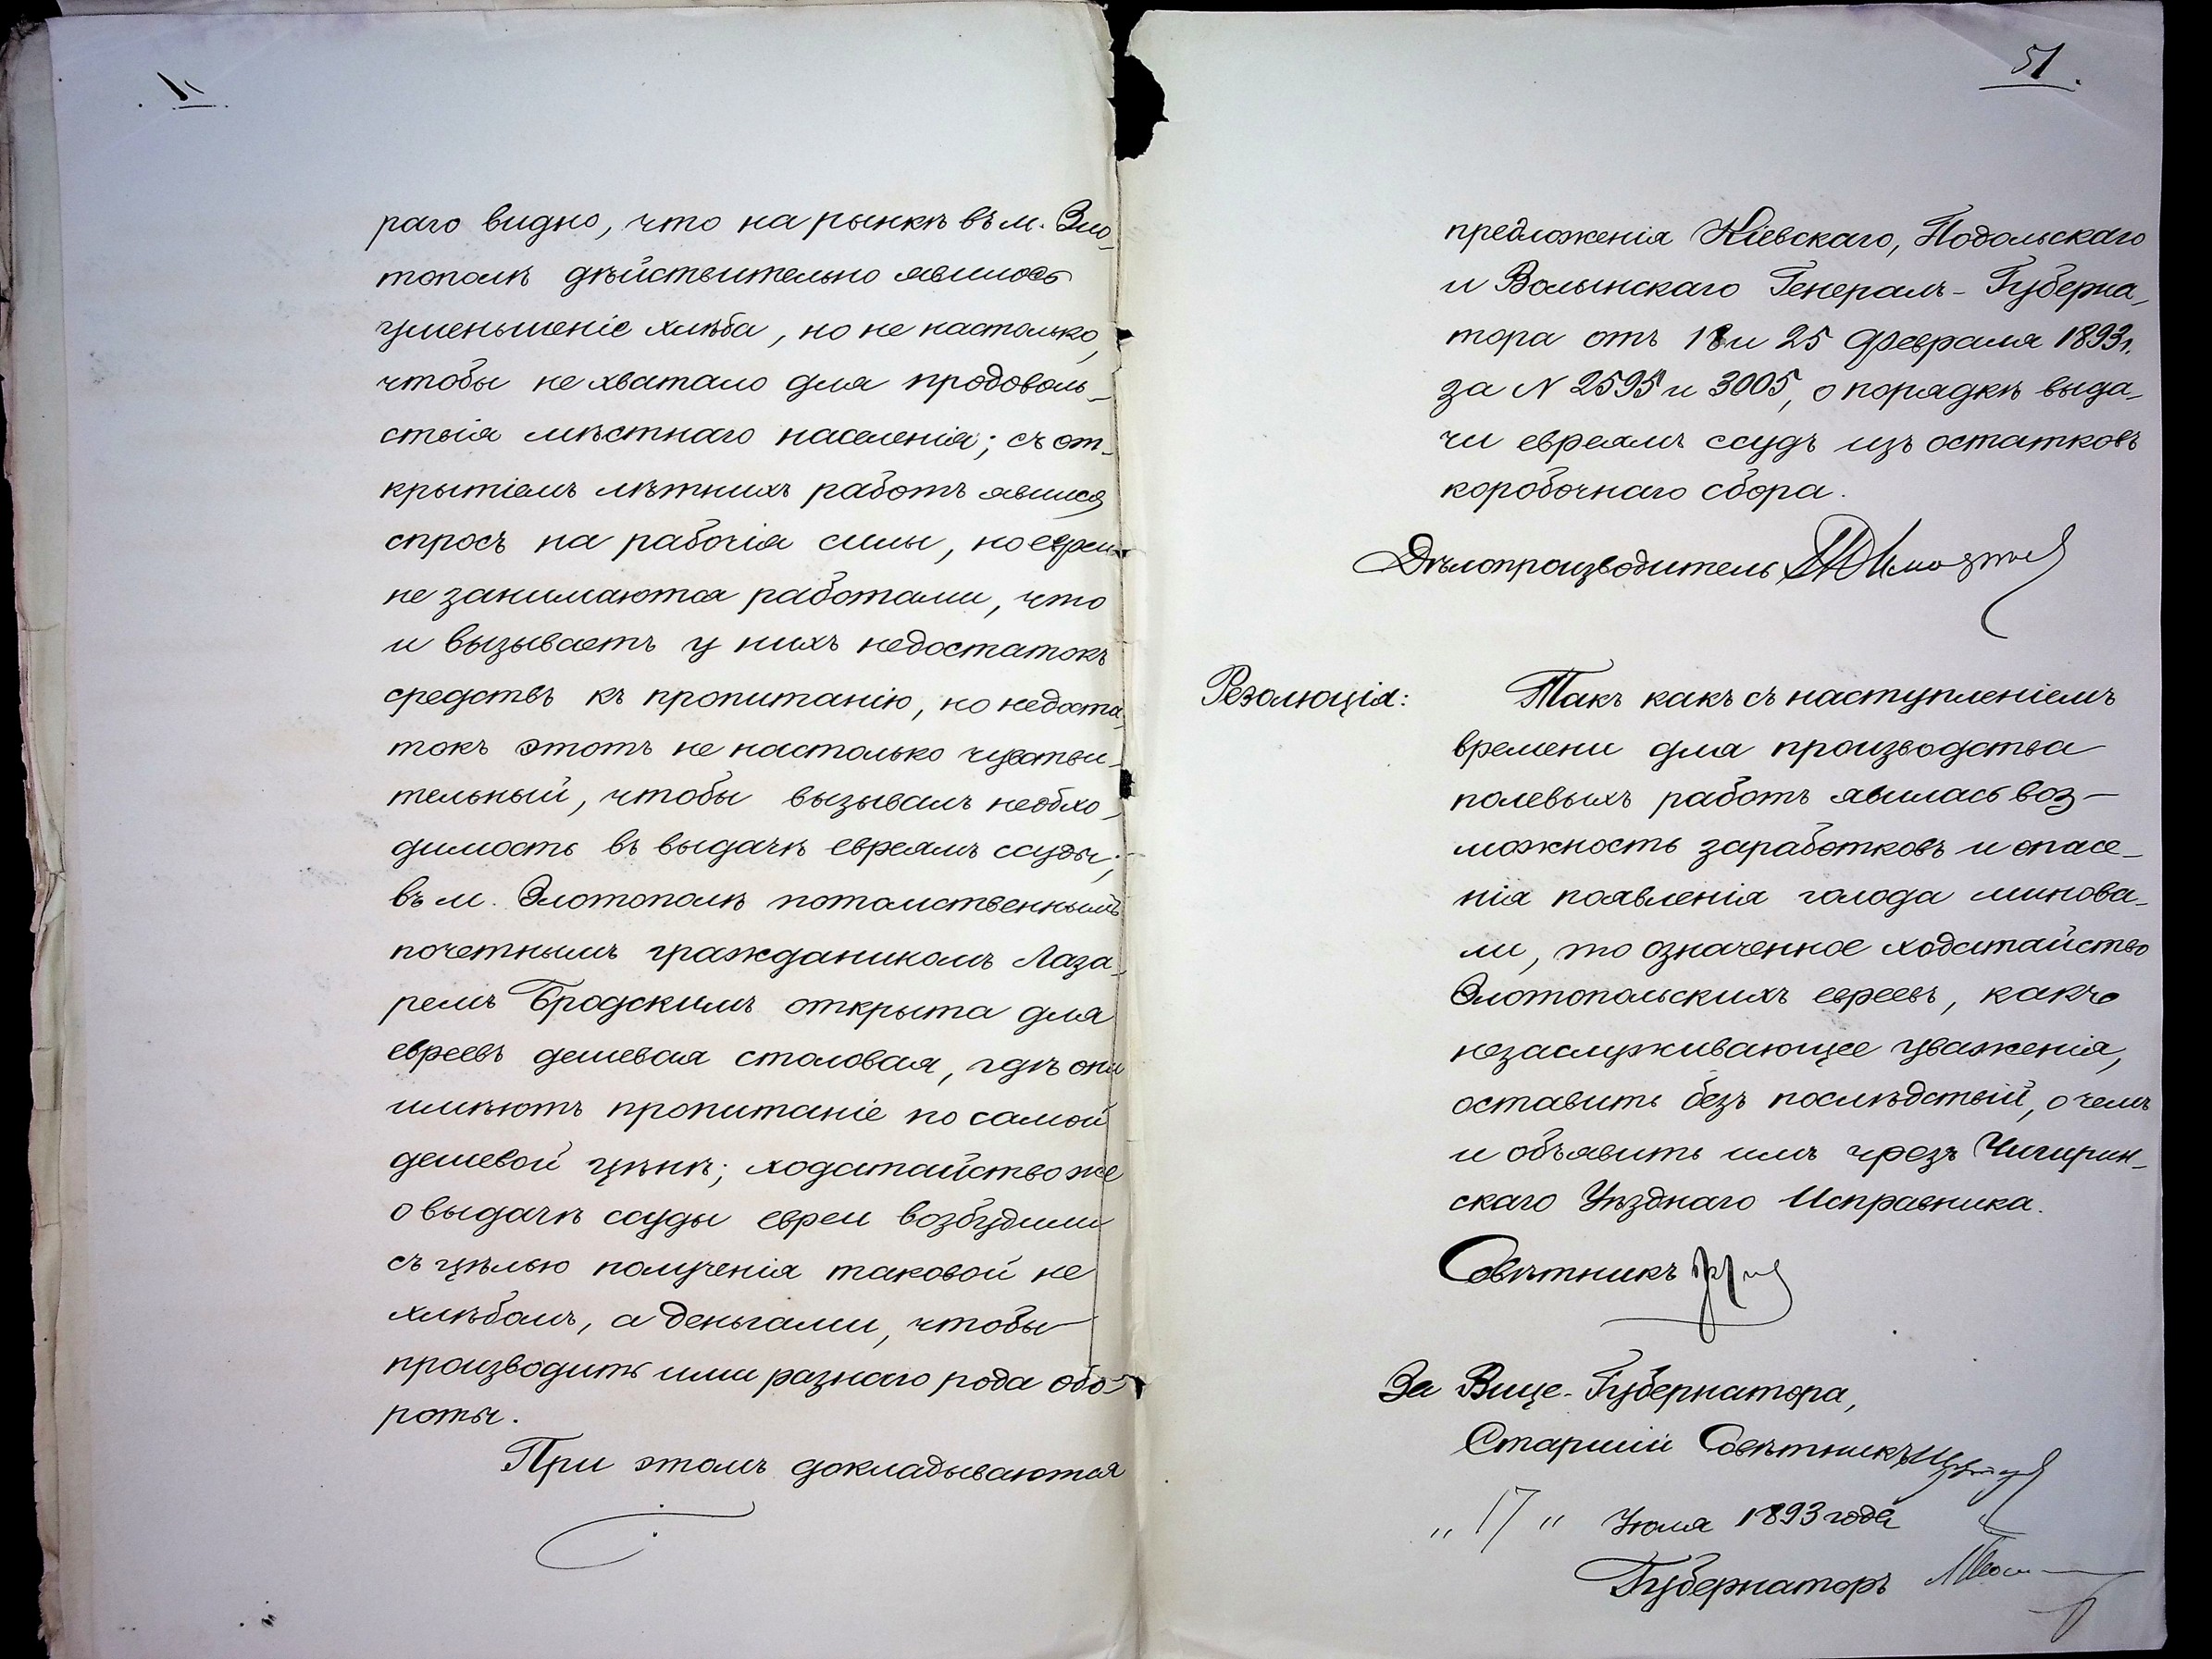 раго видно, что на рынкѣ въ м. Зло-
тополѣ дѣйствительно явилось
уменьшеніе хлѣба, но не настолько,
чтобы не хватало для продоволь-
ствія мѣстнаго населенія; съ от-
крытіемъ лѣтнихъ работъ явился
спросъ на рабочія силы, но евреи
не занимаются работами, что
и вызываетъ у нихъ недостатокъ
средствъ къ пропитанію, но недоста-
токъ этотъ не настолько чувстви-
тельный, чтобы вызывалъ необхо-
димость въ выдачѣ евреямъ ссуды;
въ м. Златополѣ потомственнымъ
почетнымъ гражданиномъ Лаза-
ремъ Бродскимъ открыта для
евреевъ дешевая столовая, гдѣ они
имѣютъ пропитаніе по самой
дешевой цѣнѣ; ходатайство же
о выдачѣ ссуды евреи возбудили
съ цѣлью полученія таковой не
хлѣбомъ, а деньгами, чтобы
производить ими разного рода обо-
роты.
При этомъ докладываются
51.
предложенія Кіевскаго, Подольскаго
и Волынскаго Генералъ-Губерна-
тора отъ 18 и 25 Февраля 1893 г.
за N 2595 и 3005, о порядкѣ выда-
чи евреямъ ссудъ изъ остатковъ
коробочнаго сбора.
Дѣлопроизводитель
Резолюція: Такъ какъ съ наступленіемъ
времени для производства
полевыхъ работъ явилась воз-
можность заработковъ и опасе-
нія появленія голода минова-
ли, то означенное ходатайство
Златопольскихъ евреевъ, какъ
незаслуживающее уваженія,
оставить безъ послѣдствій, о чемъ
и объявить имъ чрезъ Чигирин-
скаго Уѣзднаго Исправника.
Совѣтникъ
За Вице-Губернатора,
Старшій Совѣтникъ
"17" Іюля 1893 года
Губернаторъ